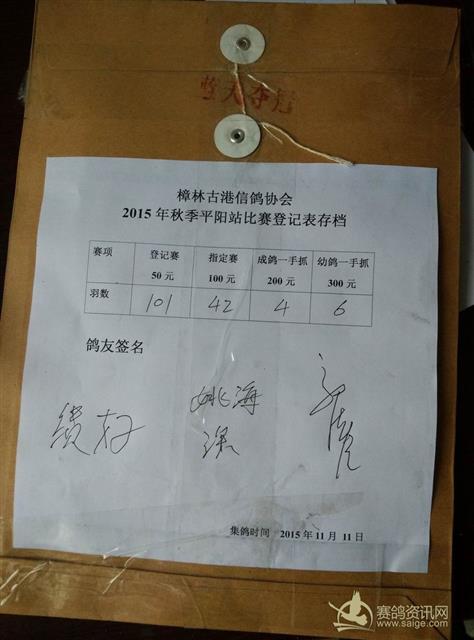 蓝天夺冠
樟林古港信鸽协会
2015 年秋季平阳站比赛登记表存档
赛项 登记赛 50 元 指定赛 100 元 成鸽一手抓 200 元 幼鸽一手抓 300 元
羽数 101 42 4 6
鸽友签名
姚海
集鸽时间 2015 年 11 月 11 日
赛鸽资讯网
www.saige.com